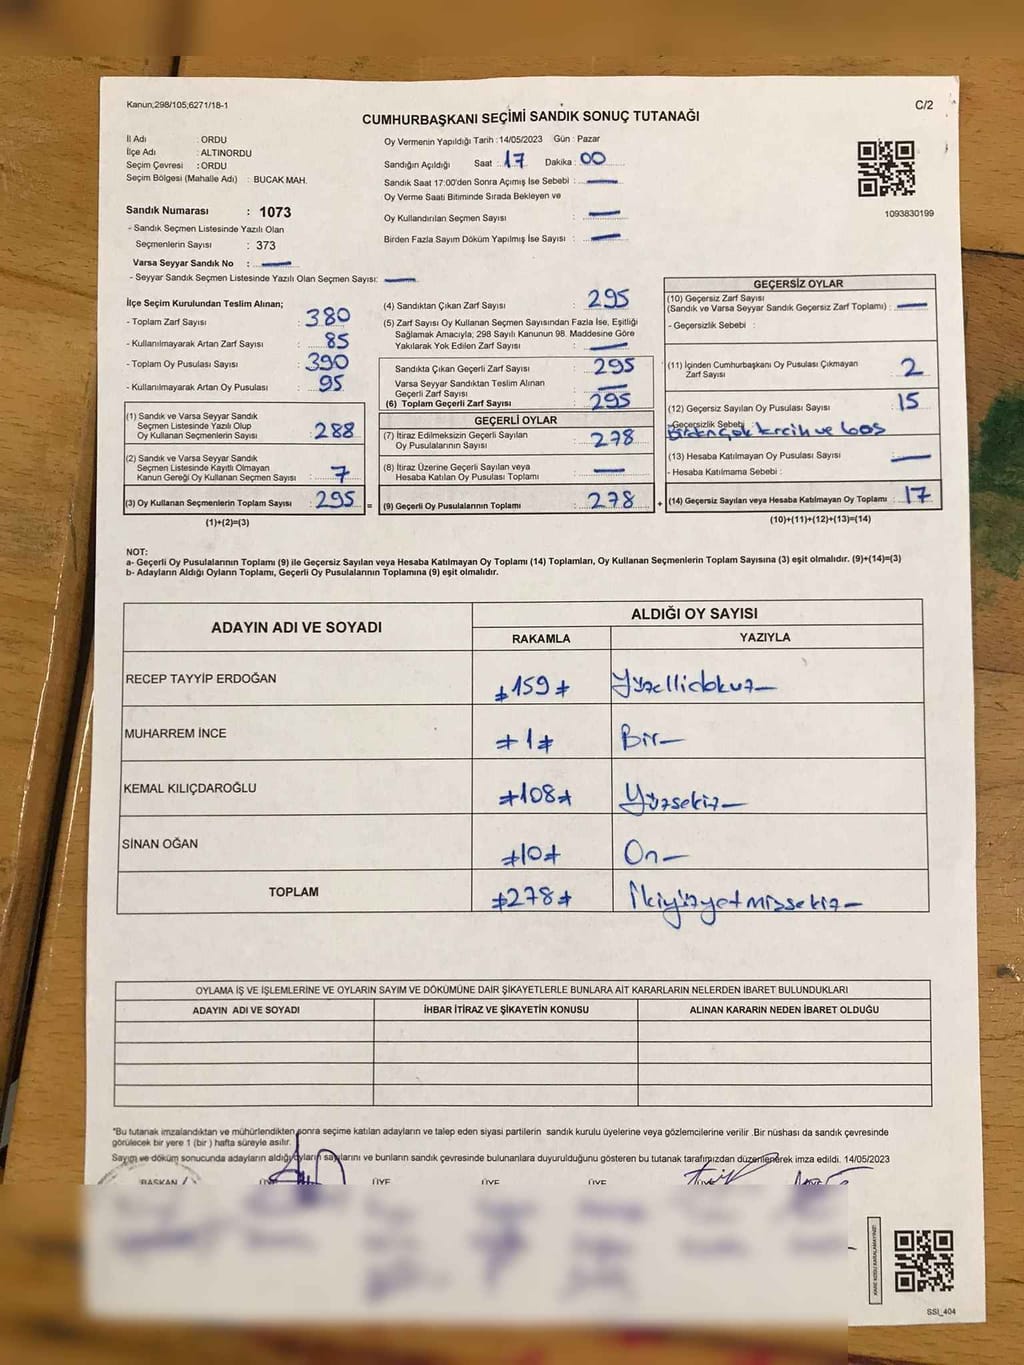 Kanun;298/105;6271/18-1
C/2
CUMHURBAŞKANI SEÇİMİ SANDIK SONUÇ TUTANAĞI
İl Adı : ORDU
İlçe Adı : ALTINORDU
Seçim Çevresi : ORDU
Seçim Bölgesi (Mahalle Adı) : BUCAK MAH.
Oy Vermenin Yapıldığı Tarih : 14/05/2023 Gün : Pazar
Sandığın Açıldığı Saat : 17 Dakika : 00
Sandık Saat 17:00'den Sonra Açımış İse Sebebi : —
Oy Verme Saati Bitiminde Sırada Bekleyen ve
Oy Kullandırılan Seçmen Sayısı : —
Birden Fazla Sayım Döküm Yapılmış İse Sayısı : —
1093830199
Sandık Numarası : 1073
- Sandık Seçmen Listesinde Yazılı Olan
Seçmenlerin Sayısı : 373
Varsa Seyyar Sandık No : —
- Seyyar Sandık Seçmen Listesinde Yazılı Olan Seçmen Sayısı: —
İlçe Seçim Kurulundan Teslim Alınan;
- Toplam Zarf Sayısı : 380
- Kullanılmayarak Artan Zarf Sayısı : 85
- Toplam Oy Pusulası Sayısı : 390
- Kullanılmayarak Artan Oy Pusulası : 95
(1) Sandık ve Varsa Seyyar Sandık
Seçmen Listesinde Yazılı Olup
Oy Kullanan Seçmenlerin Sayısı : 288
(2) Sandık ve Varsa Seyyar Sandık
Seçmen Listesinde Kayıtlı Olmayan
Kanun Gereği Oy Kullanan Seçmen Sayısı : 7
(3) Oy Kullanan Seçmenlerin Toplam Sayısı : 295 =
(1)+(2)=(3)
(4) Sandıktan Çıkan Zarf Sayısı : 295
(5) Zarf Sayısı Oy Kullanan Seçmen Sayısından Fazla İse, Eşitliği
Sağlamak Amacıyla; 298 Sayılı Kanunun 98. Maddesine Göre
Yakılarak Yok Edilen Zarf Sayısı : —
Sandıkta Çıkan Geçerli Zarf Sayısı : 295
Varsa Seyyar Sandıktan Teslim Alınan
Geçerli Zarf Sayısı : —
(6) Toplam Geçerli Zarf Sayısı : 295
GEÇERLİ OYLAR
(7) İtiraz Edilmeksizin Geçerli Sayılan
Oy Pusulası Sayısı : 278
(8) İtiraz Üzerine Geçerli Sayılan veya
Hesaba Katılan Oy Pusulası Toplamı : —
(9) Geçerli Oy Pusulalarının Toplamı : 278 +
GEÇERSİZ OYLAR
(10) Geçersiz Zarf Sayısı
(Sandık ve Varsa Seyyar Sandık Geçersiz Zarf Toplamı) : —
- Geçersizlik Sebebi :
(11) İçinden Cumhurbaşkanı Oy Pusulası Çıkmayan
Zarf Sayısı : 2
(12) Geçersiz Sayılan Oy Pusulası Sayısı : 15
- Geçersizlik Sebebi : Birden çok tercih ve boş
(13) Hesaba Katılmayan Oy Pusulası Sayısı : —
- Hesaba Katılmama Sebebi :
(14) Geçersiz Sayılan veya Hesaba Katılmayan Oy Toplamı : 17
(10)+(11)+(12)+(13)=(14)
NOT:
a- Geçerli Oy Pusulalarının Toplamı (9) ile Geçersiz Sayılan veya Hesaba Katılmayan Oy Toplamı (14) Toplamları, Oy Kullanan Seçmenlerin Toplam Sayısına (3) eşit olmalıdır. (9)+(14)=(3)
b- Adayların Aldığı Oyların Toplamı, Geçerli Oy Pusulalarının Toplamına (9) eşit olmalıdır.
ADAYIN ADI VE SOYADI
ALDIĞI OY SAYISI
RAKAMLA YAZIYLA
RECEP TAYYİP ERDOĞAN ≠159≠ Yüzellidokuz—
MUHARREM İNCE ≠1≠ Bir—
KEMAL KILIÇDAROĞLU ≠108≠ Yüzsekiz—
SİNAN OĞAN ≠10≠ On—
TOPLAM ≠278≠ İkiyüzyetmişsekiz—
OYLAMA İŞ VE İŞLEMLERİNE VE OYLARIN SAYIM VE DÖKÜMÜNE DAİR ŞİKAYETLERLE BUNLARA AİT KARARLARIN NELERDEN İBARET BULUNDUKLARI
ADAYIN ADI VE SOYADI İHBAR İTİRAZ VE ŞİKAYETİN KONUSU ALINAN KARARIN NEDEN İBARET OLDUĞU
"Bu tutanak imzalandıktan ve mühürlendikten sonra seçime katılan adayların ve talep eden siyasi partilerin sandık kurulu üyelerine veya gözlemcilerine verilir .Bir nüshası da sandık çevresinde
görülecek bir yere 1 (bir ) hafta süreyle asılır.
Sayım ve döküm sonucunda adayların aldığı oyların sayılarını ve bunların sandık çevresinde bulunanlara duyurulduğunu gösteren bu tutanak tarafımızdan düzenlenerek imza edildi. 14/05/2023
BAŞKAN ÜYE ÜYE ÜYE ÜYE
SSİ_404